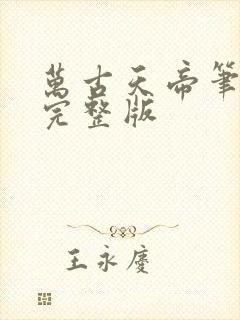 萬古天帝筆
完整版
王永慶